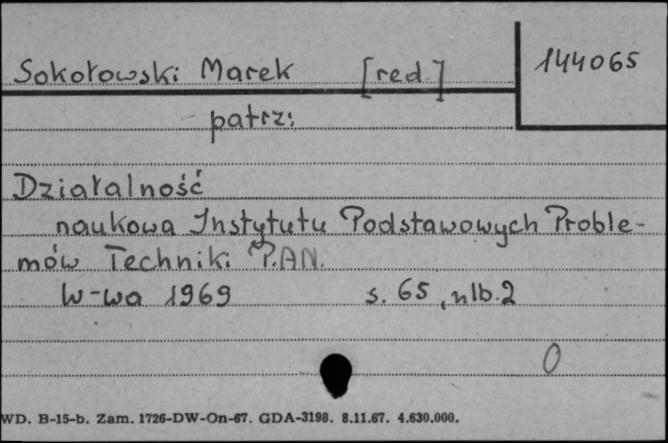 144065
Sokołowski Marek [red.]
patrz:
Działalność
naukowa Instytutu Podstawowych Proble-
mów Techniki P.AN.
W-wa 1969 s. 65, nlb. 2
0
WD. B-15-b. Zam. 1726-DW-On-67. GDA-3198. 8.11.67. 4.630.000.